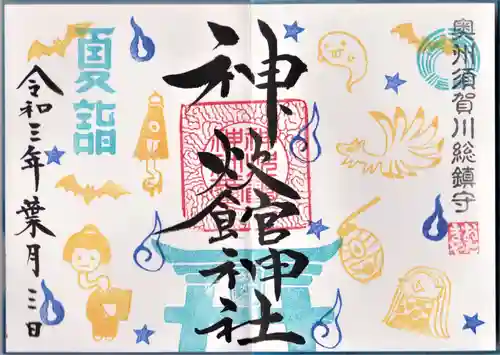 奥州須賀川総鎮守
神炊館神社
夏詣
令和三年葉月三日